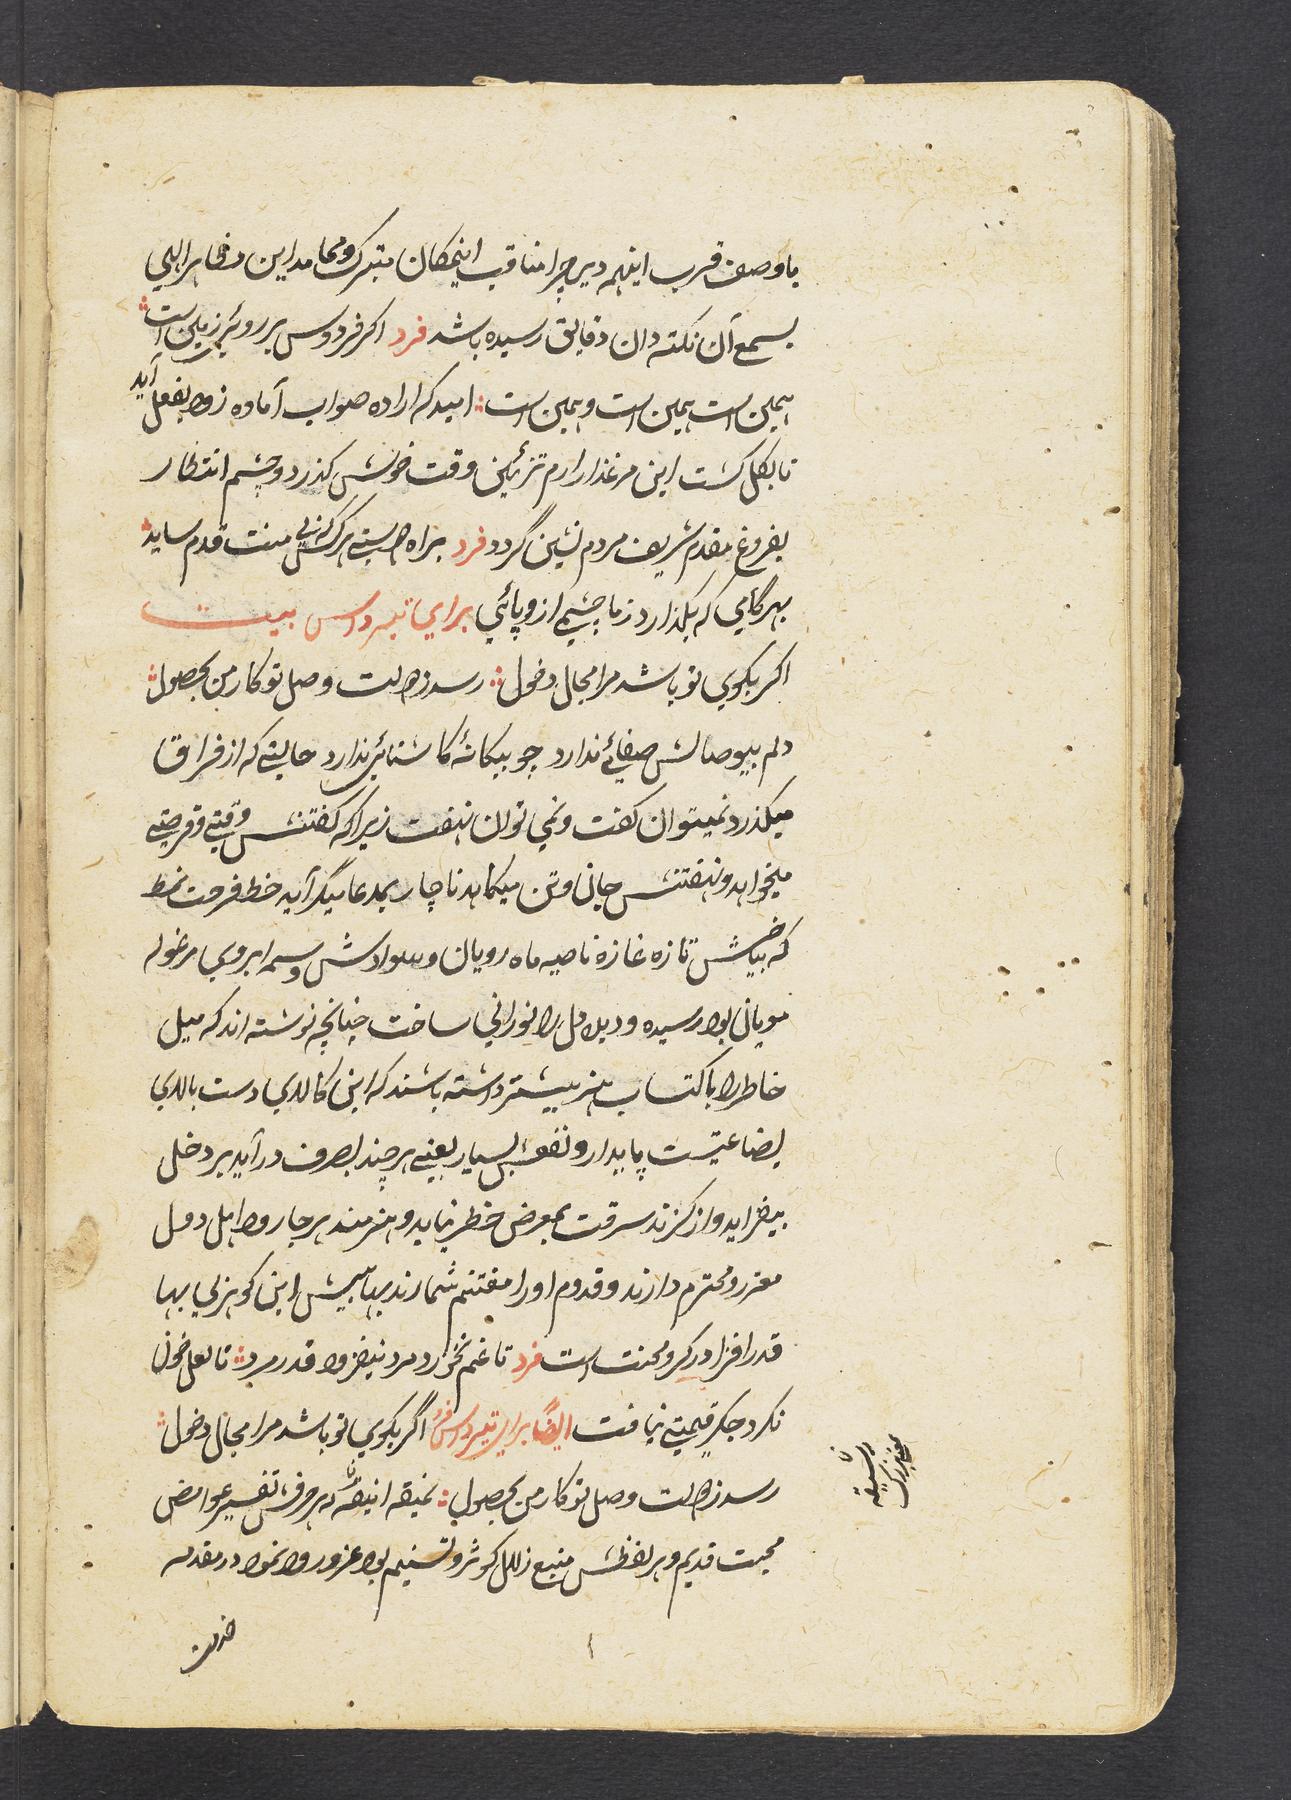 باوصف قرب اینهمه دیر چرا مناقب اینمکان متبرک و محامد این مظاهر الهی
بسمع آن نکته دان دقایق رسیده باشد فرد اگر فردوس بر روئے زمین است
همین است همین است و همین است امید که اراده صواب آماده زود بفعل آید
تا بگلگشت این مرغزار ارم تزئین وقت خوش گذرد و چشم انتظار
بفروغ مقدم شریف مردم نشین گردد فرد براه منت قدم ساید
بهر گامی که بگذارد ز ما چشمی ازو پائی برای تیسرداس بیت
اگر بکوی تو باشد مرا مجال دخول رسد ز دولت وصل تو کار من بحصول
دلم بیوصالش صفائے ندارد چو بیگانۀ کاشنائی ندارد حالیتی که از فراق
میگذرد نمیتوان گفت و نمی توان نهفت زیرا که گفتنش وقتے و فرصتے
میخواهد و نهفتنش جان و تن میکاهد ناچار بمدعا میگراید خط فرحت نمط
که بیاضش تازه غازه ناصیه ماه رویان و سوادش وسمه ابروی مرغوله
مویان بود رسیده و دیده دل را نورانی ساخت چنانچه نوشته اند که میل
خاطر را باکتساب هنر بیشتر داشته باشند که این کالای دست بالای
بضاعتیست پایدار و نفعش بسیار یعنے هر چند بصرف در آید بر دخل
بیفزاید و از گزند سرقت بمعرض خطر نیاید و هنرمند هر جا رود اهل دول
معزز و محترم دارند و قدوم او را مغتنم شمارند بهابیش این گوهر بی بها
قدر افزا در گرو محنت است فرد تا غم نخورد مرد نیفزود قدر مرد تا لعل خون
نکرد جگر قیمتے نیافت ایضا برای تیسرداس فرد اگر بکوی تو باشد مرا مجال دخول
رسد ز دولت وصل تو کار من بحصول نمیقه انیقه که هر حرفش تفسیر غوامض
محبت قدیم و هر لفظش منبع زلال کوثر و تسنیم بود عز ورود نمود در مقدمه
خدمت